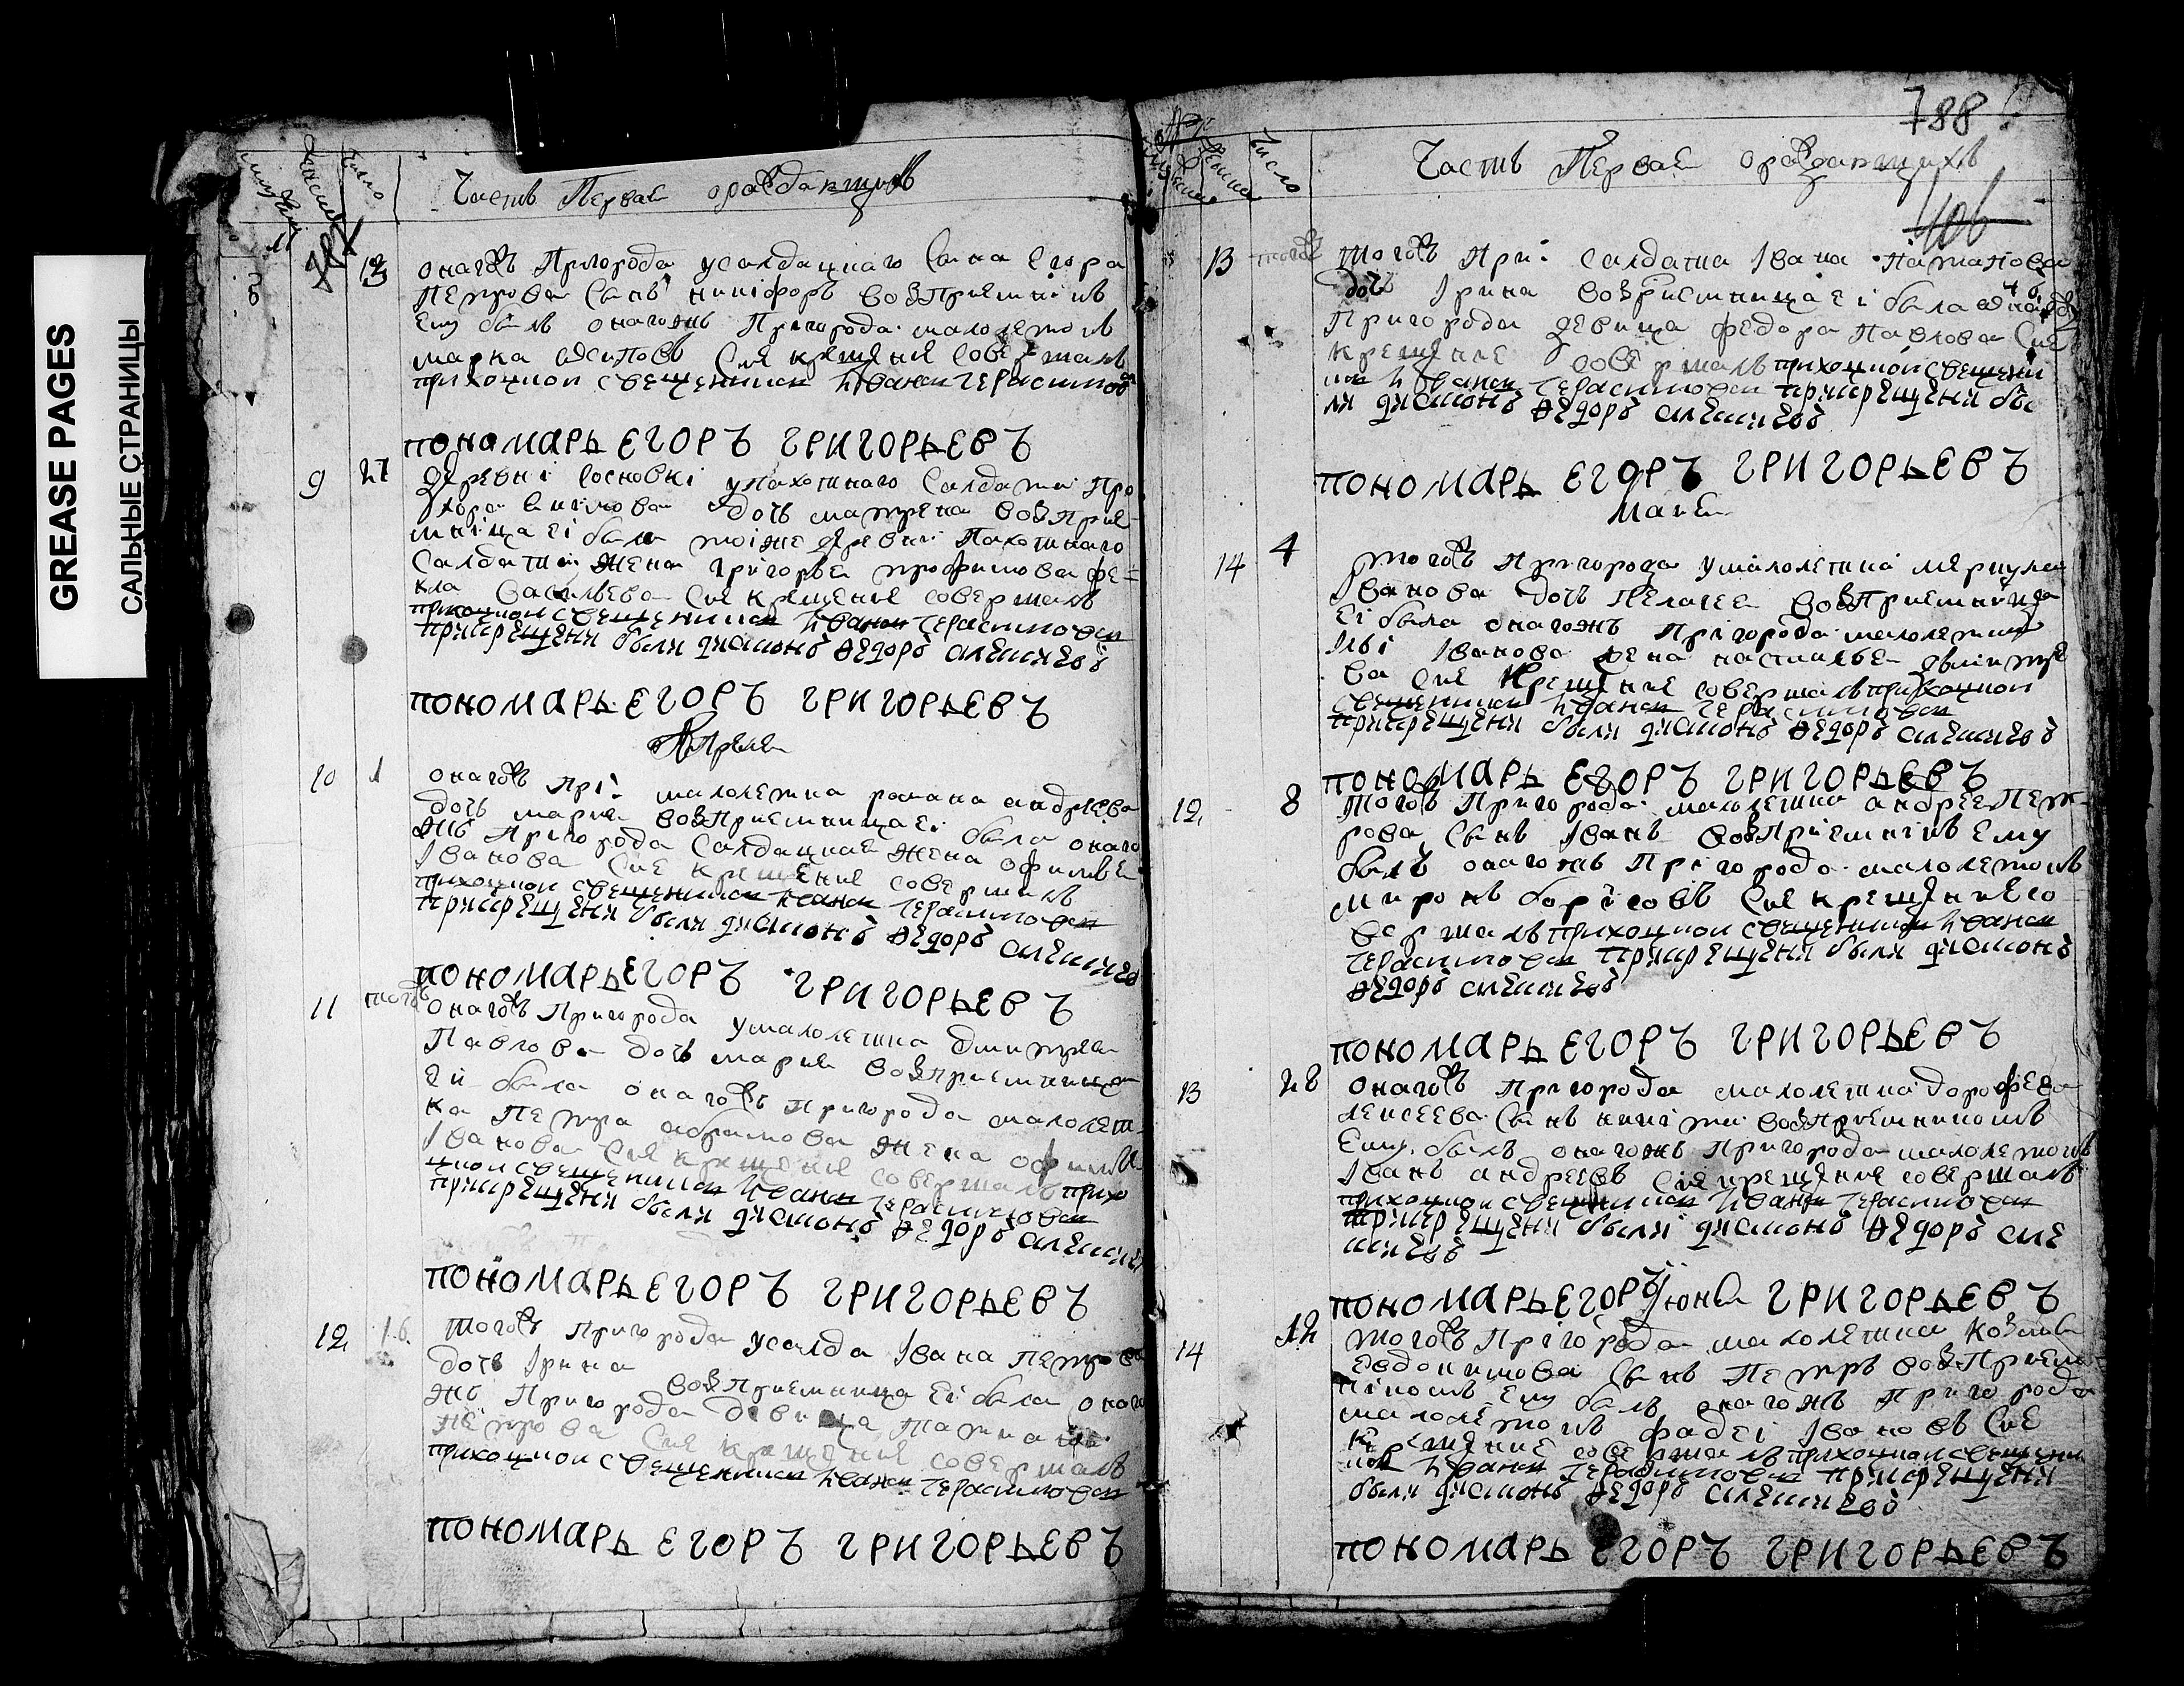 GREASE PAGES
САЛЬНЫЕ СТРАНИЦЫ
число
Часть Первая ораждающихся
13
онагожъ Пригорода усалдацкаго сына Егора
Петрова сынъ никифоръ возПриемникъ
Ему былъ онагожъ Пригорода малолетокъ
марка Сие крещение совершалъ
приходцкои священникъ Иванъ Герасимовъ
пономарь Егоръ Григорьевъ
9
27
деревни Сосновки упахотнаго салдата Про
хора дочь матрена возПрие
мница еі была тоіже деревни Пахотнаго
салдата жена григорья трофимова фе
кла Васильева Сие крещение совершалъ
приходцкои священникъ Иванъ Герасимовъ
присрещении были дьяконъ Федоръ Алексиевъ
пономарь Егоръ Григорьевъ
Апреля
10
1
онагожъ Прі: малолетка романа андреева
дочь марья возПриемница еі была онаго
жъ Пригорода Салдацкая жена офимья
Іванова Сие крещение совершалъ
приходцкои священникъ Иванъ Герасимовъ
присрещении были дьяконъ Федоръ Алексиев
пономарь Егоръ Григорьевъ
11
тогожъ
онагожъ Пригорода умалолетка дмитрея
Павлова дочь марья возприемница
еи была онагожъ Пригорода малолет
ка Петра абрамова жена офимья
Іванова Сие крещение совершалъ прихо
цкои священникъ Иванъ Герасимовъ
присрещении были дьяконъ Федоръ Алексие
пономарь Егоръ Григорьевъ
12
16
тогожъ Пригорода усалда Івана Петрова
дочь Ірина возПриемница Еі была онаго
жъ Пригорода девица
Петрова Сие крещение совершалъ
приходцкои священникъ Иванъ Герасимовъ
пономарь Егоръ Григорьевъ
788
число
Часть Первая ораждающихся
406
13
тогожъ
тогожъ При: салдата Івана Патапова
дочь Ірина возПриемница еі была
Пригорода девица федора Павлова Сие
крещение совершалъ приходцкои священни
къ Иванъ Герасимовъ присрещении бы
ли дьяконъ Федоръ Алексиевъ
пономарь Егоръ Григорьевъ
Майя
14
4
тогожъ Пригорода умалолетка меркула
Іванова дочь Пелагея возПриемница
Еі была онагожъ Прігорода малолетка
Ильі Іванова жена настасья дмитре
ва Сие Крещение совершалъ приходцкои
священникъ Иванъ Герасимовъ
присрещении были дьяконъ Федоръ Алексиевъ
пономарь Егоръ Григорьевъ
12
8
тогожъ Пригорода малолетка андрея Пет
рова сынъ Іванъ возПріемнікъ Ему
былъ онагожъ Прігорода малолетокъ
миронъ борісовъ Сие крещение со
вершалъ приходцкои священникъ Иванъ
Герасимовъ присрещении были дьяконъ
Федоръ Алексиевъ
пономарь Егоръ Григорьевъ
13
28
онагожъ Пригорода малолетка дорофея
Лексеева сынъ никіта возПриемникомъ
Ему былъ онагожъ Пригорода малолетокъ
Іванъ андреевъ Сие крещение совершалъ
приходцкои священникъ Иванъ Герасимовъ
присрещении были дьяконъ Федоръ Але
ксиевъ
пономарь Егоръ Григорьевъ
Июня
14
12
тогожъ Прігорода малолетка Козмы
Евдокимова сынъ Петръ возПрием
нікомъ Ему былъ онагожъ Пригорода
малолетокъ фадеі Івановъ Сие
крещение совершалъ приходцкои священни
къ Иванъ Герасимовъ присрещении
были дьяконъ Федоръ Алексиевъ
пономарь Егоръ Григорьевъ